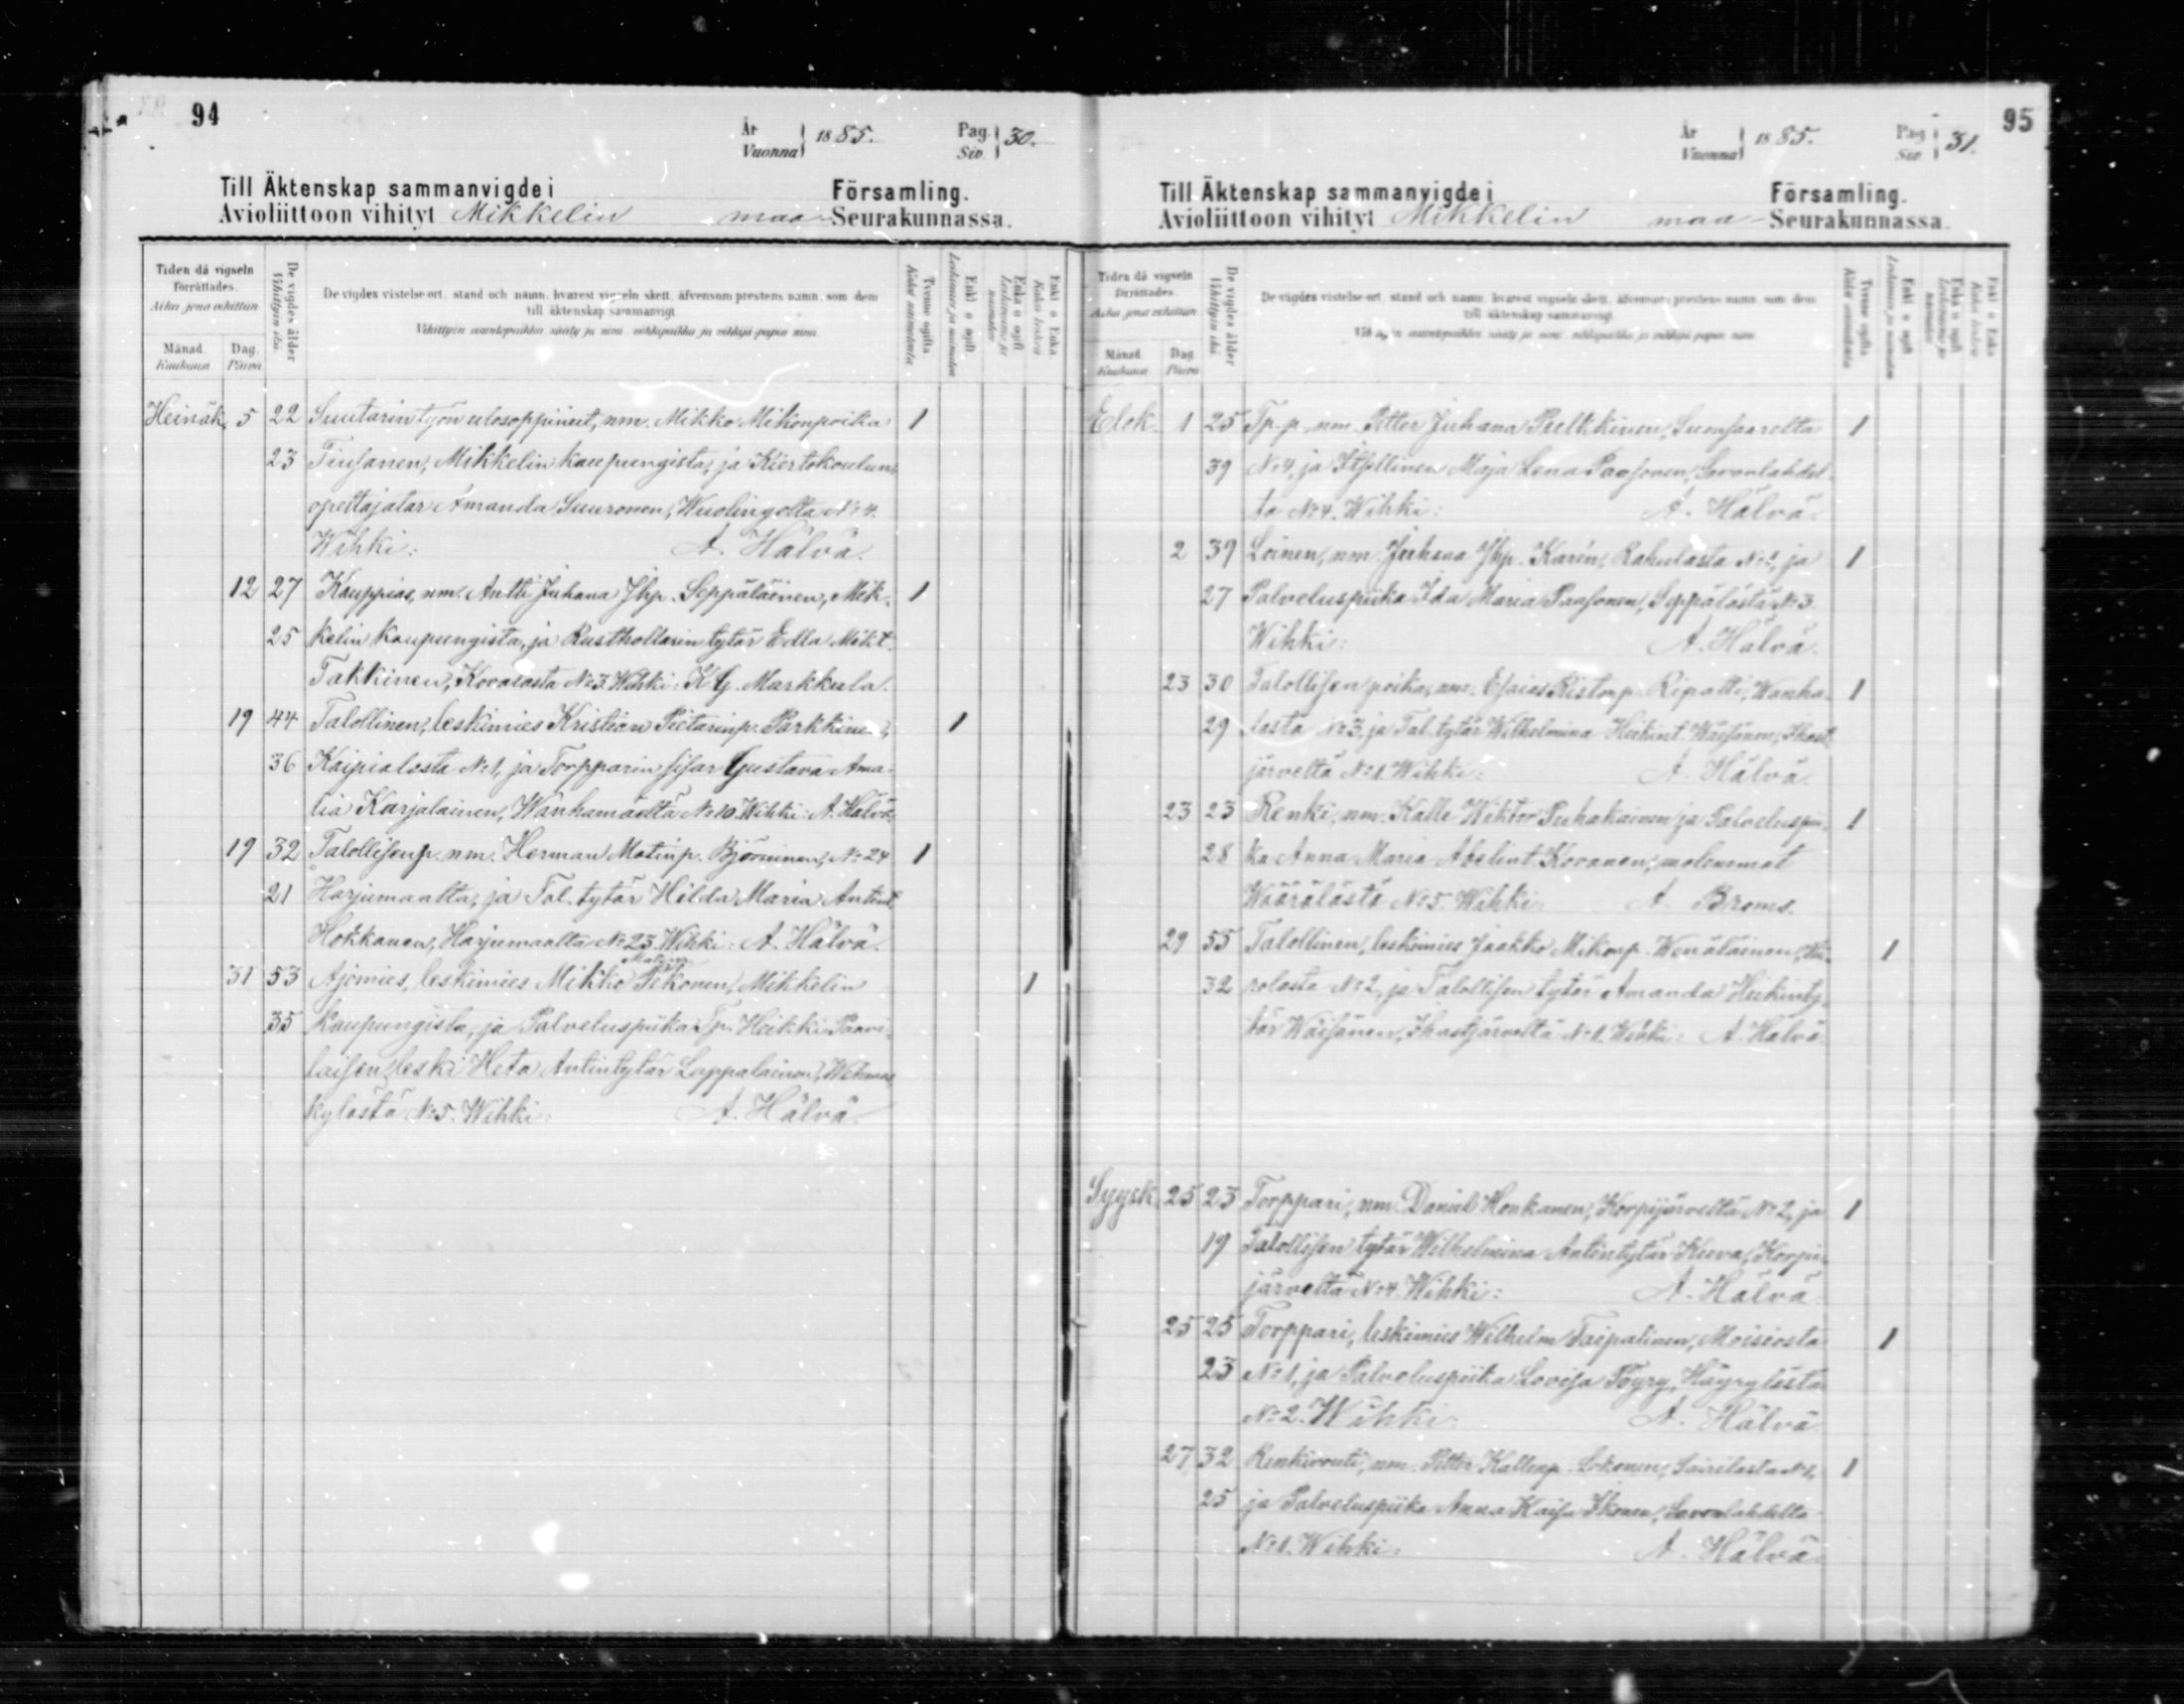 94
År
Vuonna 1885. Pag. Siv. 30.
Till Äktenskap sammanvigde i Församling.
Avioliittoon vihityt Mikkelin maa- Seurakunnassa.
Tiden då vigseln förrättades.
Aika jona vihittiin
Månad. Kuukausi
Dag. Päivä
De vigdes ålder
Vihittyin ikä
De vigdes vistelse-ort, stand och namn, hvarest vigseln skett, äfvensom prestens namn, som dem
till äktenskap sammanvigt.
Vihittyin asuntopaikka, sääty ja nimi, vihkipaikka ja vihkijä papin nimi.
Tvenne ogifta
Kaksi naimatonta
Enkl. o. ogift
Leskimies ja naimaton
Enka o. ogift
Leskivaimo ja naimaton
Enkl. o. Enka
Kaksi leskeä
Heinäk. 5 22 Suutarin työn ulosoppinut, nm. Mikko Mikonpoika 1
23 Tiusanen, Mikkelin kaupungista, ja Kiertokoulun
opettajatar Amanda Suuronen, Wuolingolta No 4.
Wihki: A. Hälvä.
12 27 Kauppias, nm. Antti Juhana Jhp. Seppäläinen, Mik- 1
25 kelin kaupungista, ja Rusthollarin tytär Edla Mikt.
Takkinen, Kovalasta No 3 Wihki: K G. Markkula.
19 44 Talollinen, leskimies Kristian Pietarinp. Parkkinen, 1
36 Kaipialasta No 1, ja Torpparin sisar Gustava Ama-
lia Karjalainen, Wanhamäeltä No 10. Wihki: A. Hälvä
19 32 Talollisen p. nm. Herman Matinp. Björninen, No 24 1
21 Harjumaalta, ja Tal. tytär Hilda Maria Antint.
Hokkanen, Harjumaalta No 23. Wihki: A. Hälvä.
31 53 Ajomies, leskimies Mikko Pekonen, Mikkelin 1
35 kaupungista, ja Palveluspiika Tp. Heikki Paavi-
laisen leski Heta Antintytär Lappalainen, Wehmas
kylästä No 5. Wihki: A. Hälvä.
95
År
Vuonna 1885. Pag. Siv. 31.
Till Äktenskap sammanvigde i Församling.
Avioliittoon vihityt Mikkelin maa- Seurakunnassa.
Tiden då vigseln förrättades.
Aika jona vihittiin
Månad. Kuukausi
Dag. Päivä
De vigdes ålder
Vihittyin ikä
De vigdes vistelse-ort, stand och namn, hvarest vigseln skett, äfvensom prestens namn, som dem
till äktenskap sammanvigt.
Vihittyin asuntopaikka, sääty ja nimi, vihkipaikka ja vihkijä papin nimi.
Tvenne ogifta
Kaksi naimatonta
Enkl. o. ogift
Leskimies ja naimaton
Enka o. ogift
Leskivaimo ja naimaton
Enkl. o. Enka
Kaksi leskeä
Elok. 1 25 Tp. p. nm. Petter Juhana Pulkkinen, Suonsaarelta 1
39 No 4, ja Itsellinen Maja Lena Paasonen, Savonlahdel-
ta No 4. Wihki: A. Hälvä.
2 39 Loinen, nm. Juhana Jhp. Karén, Rahulasta No 1, ja 1
27 Palveluspiika Ida Maria Paasonen, Seppälästä No 3.
Wihki: A. Hälvä.
23 30 Talollisen poika, nm. Esaias Ristonp. Ripatti, Wanha- 1
29 lasta No 3. ja Tal. tytär Wilhelmina Heikint. Wäisänen, Ihast-
järveltä No 1. Wihki: A. Hälvä.
23 23 Renki, nm. Kalle Wiktor Puhakainen ja Palveluspii- 1
28 ka Anna Maria Abelint. Kovanen, molemmat
Wäärälästä No 5. Wihki: A. Broms.
29 55 Talollinen, leskimies Jaakko Mikonp. Wenäläinen, 1
32 rolasta No 2, ja Talollisen tytär Amanda Heikinty-
tär Wäisänen, Ihastjärveltä No 1. Wihki: A. Hälvä.
Syysk. 25 23 Torppari, nm. Daniel Honkanen, Korpijärveltä No 2, ja 1
19 Talollisen tytär Wilhelmina Antintytär Kuva, Korpi-
järveltä No 4 Wihki: A. Hälvä
25 25 Torppari, leskimies Wilhelm Taipalinen, Moisiosta 1
23 No 1, ja Palveluspiika Lovisa Töyry, Häyrylästä
No 2. Wihki: A. Hälvä
27 32 Renkivouti, nm. Petter Kallenp. Lokonen, Sairilasta No 1, 1
25 ja Palveluspiika Anna Kaisa Ikonen, Savonlahdelta
No 1. Wihki: A. Hälvä.